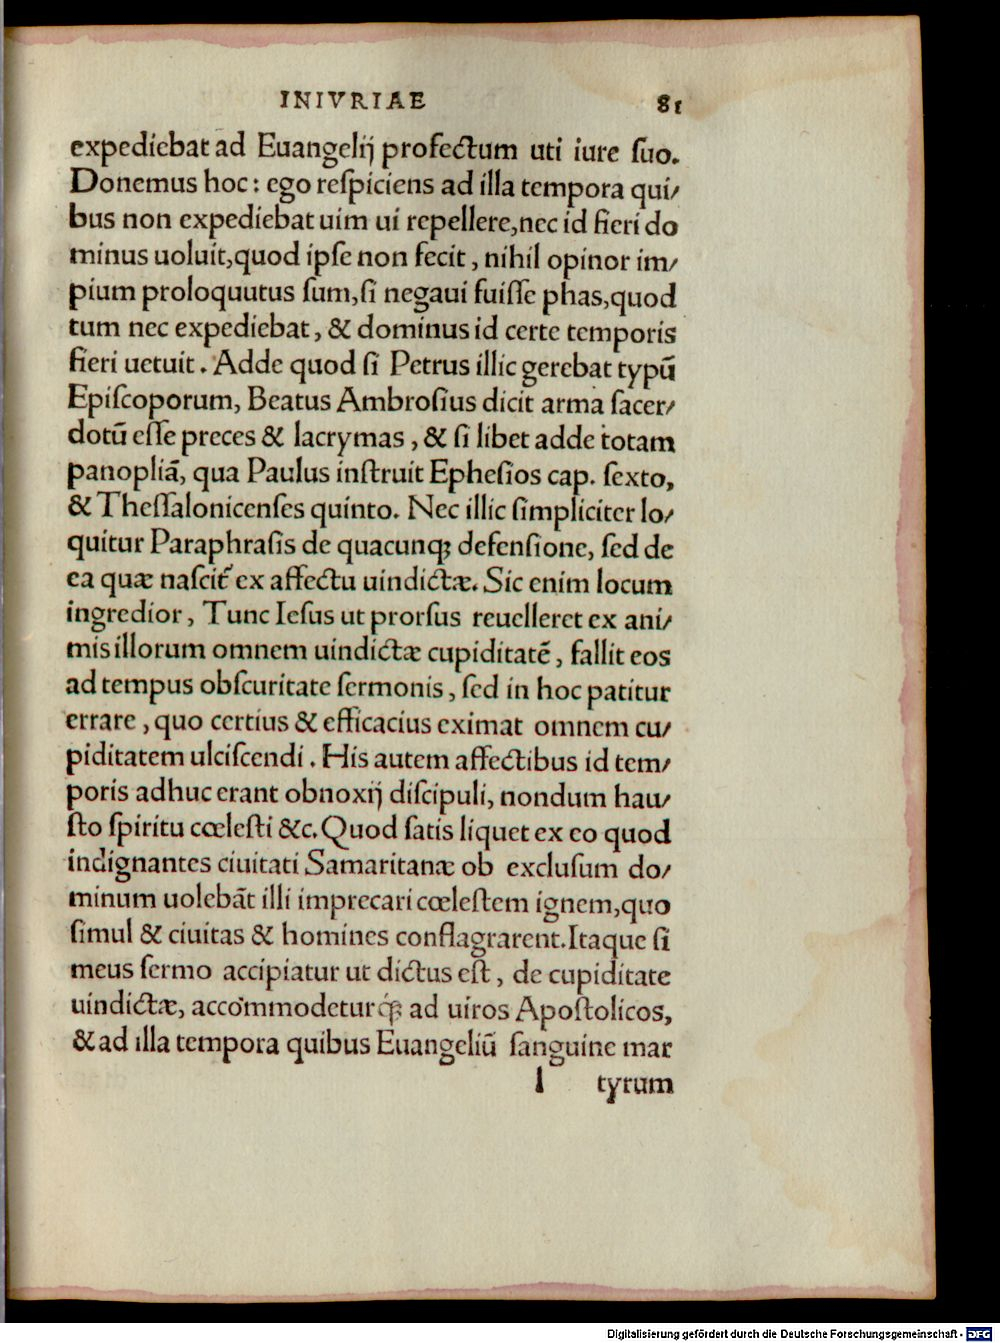 INIVRIAE 81
expediebat ad Euangelij profectum uti iure ſuo.
Donemus hoc: ego reſpiciens ad illa tempora qui/
bus non expediebat uim ui repellere,nec id fieri do
minus uoluit,quod ipſe non fecit, nihil opinor im/
pium proloquutus ſum,ſi negaui fuiſſe phas,quod
tum nec expediebat, & dominus id certe temporis
fieri uetuit. Adde quod ſi Petrus illic gerebat typũ
Epiſcoporum, Beatus Ambroſius dicit arma ſacer/
dotũ eſſe preces & lacrymas, & ſi libet adde totam
panopliã, qua Paulus inſtruit Epheſios cap. ſexto,
& Theſſalonicenſes quinto. Nec illic ſimpliciter lo/
quitur Paraphraſis de quacunqꝫ defenſione, ſed de
ea quæ naſcit᷑ ex affectu uindictæ. Sic enim locum
ingredior, Tunc Ieſus ut prorſus reuelleret ex ani/
mis illorum omnem uindictæ cupiditatẽ, fallit eos
ad tempus obſcuritate ſermonis, ſed in hoc patitur
errare, quo certius & efficacius eximat omnem cu/
piditatem ulciſcendi. His autem affectibus id tem/
poris adhuc erant obnoxij diſcipuli, nondum hau/
ſto ſpiritu cœleſti &c. Quod ſatis liquet ex eo quod
indignantes ciuitati Samaritanæ ob excluſum do/
minum uolebãt illi imprecari cœleſtem ignem,quo
ſimul & ciuitas & homines conflagrarent.Itaque ſi
meus ſermo accipiatur ut dictus eſt, de cupiditate
uindictæ, accommodetuŕqꝫ ad uiros Apoſtolicos,
& ad illa tempora quibus Euangeliũ ſanguine mar
l tyrum
Digitalisierung gefördert durch die Deutsche Forschungsgemeinschaft - DFG